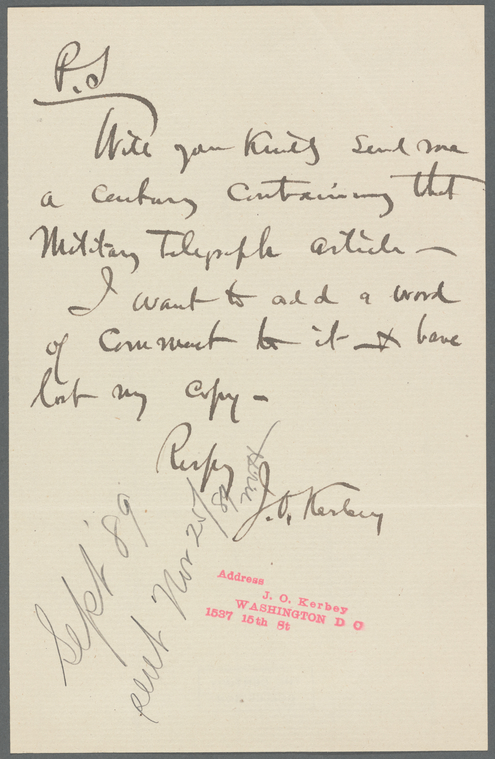 P.S
Will you kindly send me
a Century containing that
Military Telegraph article —
I want to add a word
of comment to it & have
lost my copy —
Respy
J. O. Kerbey
Sept '89
sent Nov 25/
Address
J. O. Kerbey
WASHINGTON D C
1537 15th St